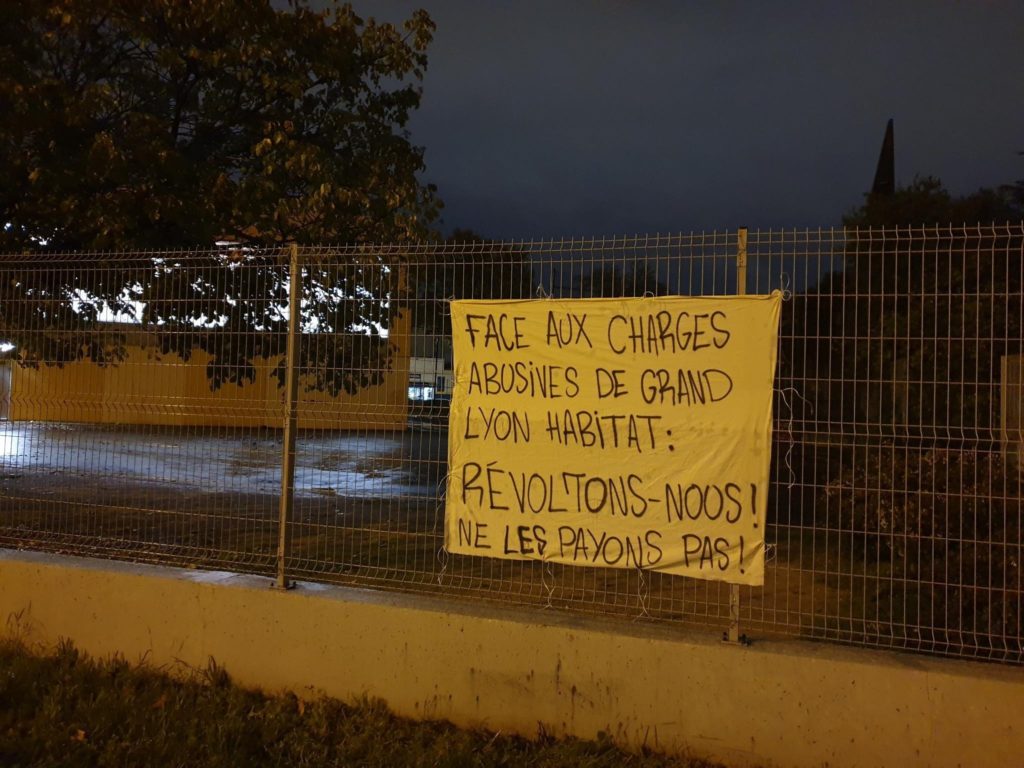 FACE AUX CHARGES
ABUSIVES DE GRAND
LYON HABITAT:
RÉVOLTONS-NOUS!
NE LES PAYONS PAS!